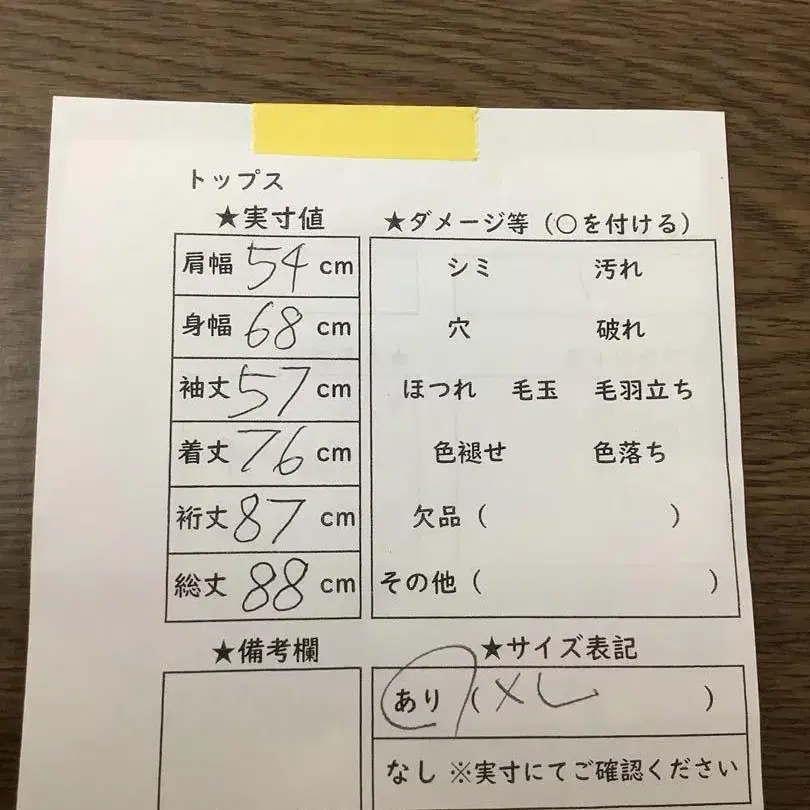 トップス
★実寸値
肩幅 54 cm
身幅 68 cm
袖丈 57 cm
着丈 76 cm
裄丈 87 cm
総丈 88 cm
★ダメージ等（○を付ける）
シミ 汚れ
穴 破れ
ほつれ 毛玉 毛羽立ち
色褪せ 色落ち
欠品（ ）
その他（ ）
★備考欄
★サイズ表記
あり（XL ）
なし ※実寸にてご確認ください